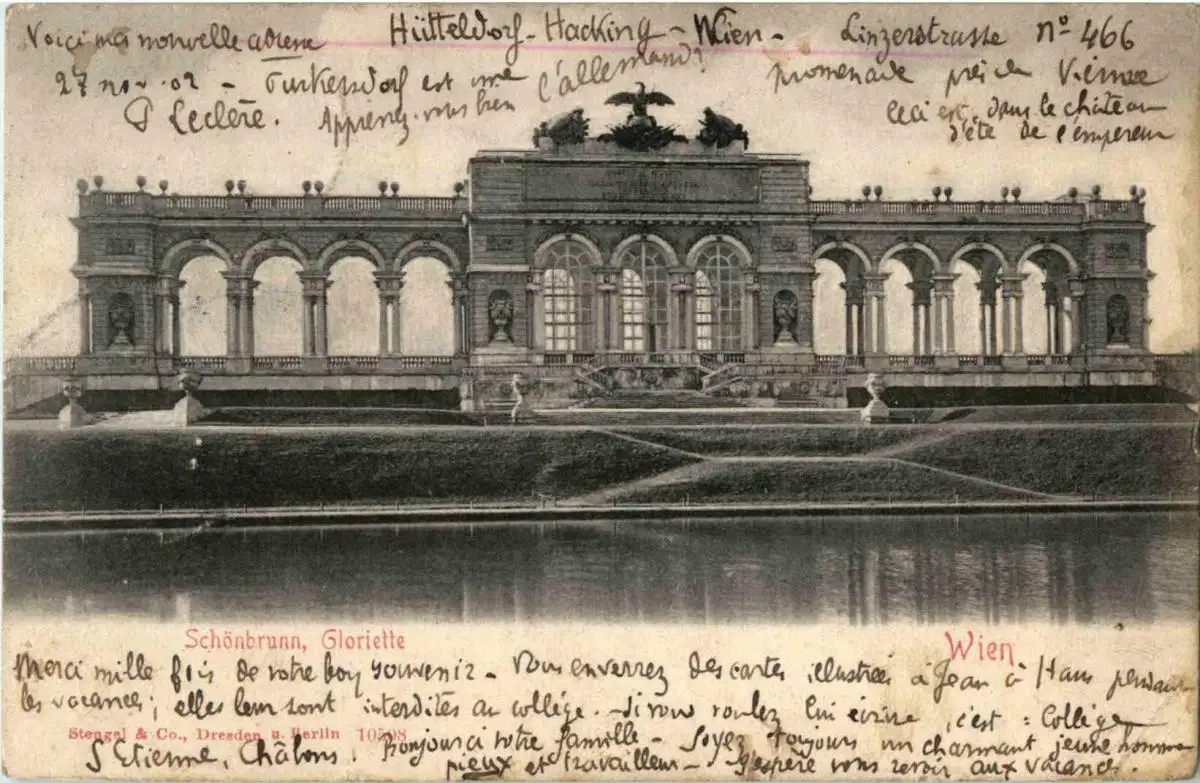 Voici ma nouvelle adresse Hütteldorf-Hacking-Wien- Linzerstrasse n° 466
27 nov. 02 - Purkersdorf est une promenade près de Vienne
P Leclère. Apprenez-vous bien l'allemand?
Ceci est dans le château
d'été de l'empereur
Schönbrunn, Gloriette
Wien
Merci mille fois de votre bon souvenir - Vous enverrez des cartes illustrées à Jean à Hans pendant
les vacances; elles leur sont interdites au collège. - Si vous voulez lui écrire, c'est : Collège
Stengel & Co., Dresden u. Berlin
S Etienne, Châlons. Bonjour à votre famille - Soyez toujours un charmant jeune homme
pieux et travailleur - J'espère vous revoir aux vacances.